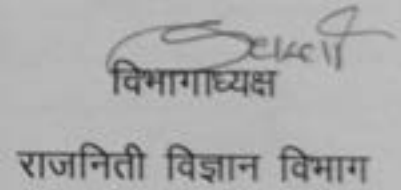 विभागाध्यक्ष
राजनिती विज्ञान विभाग